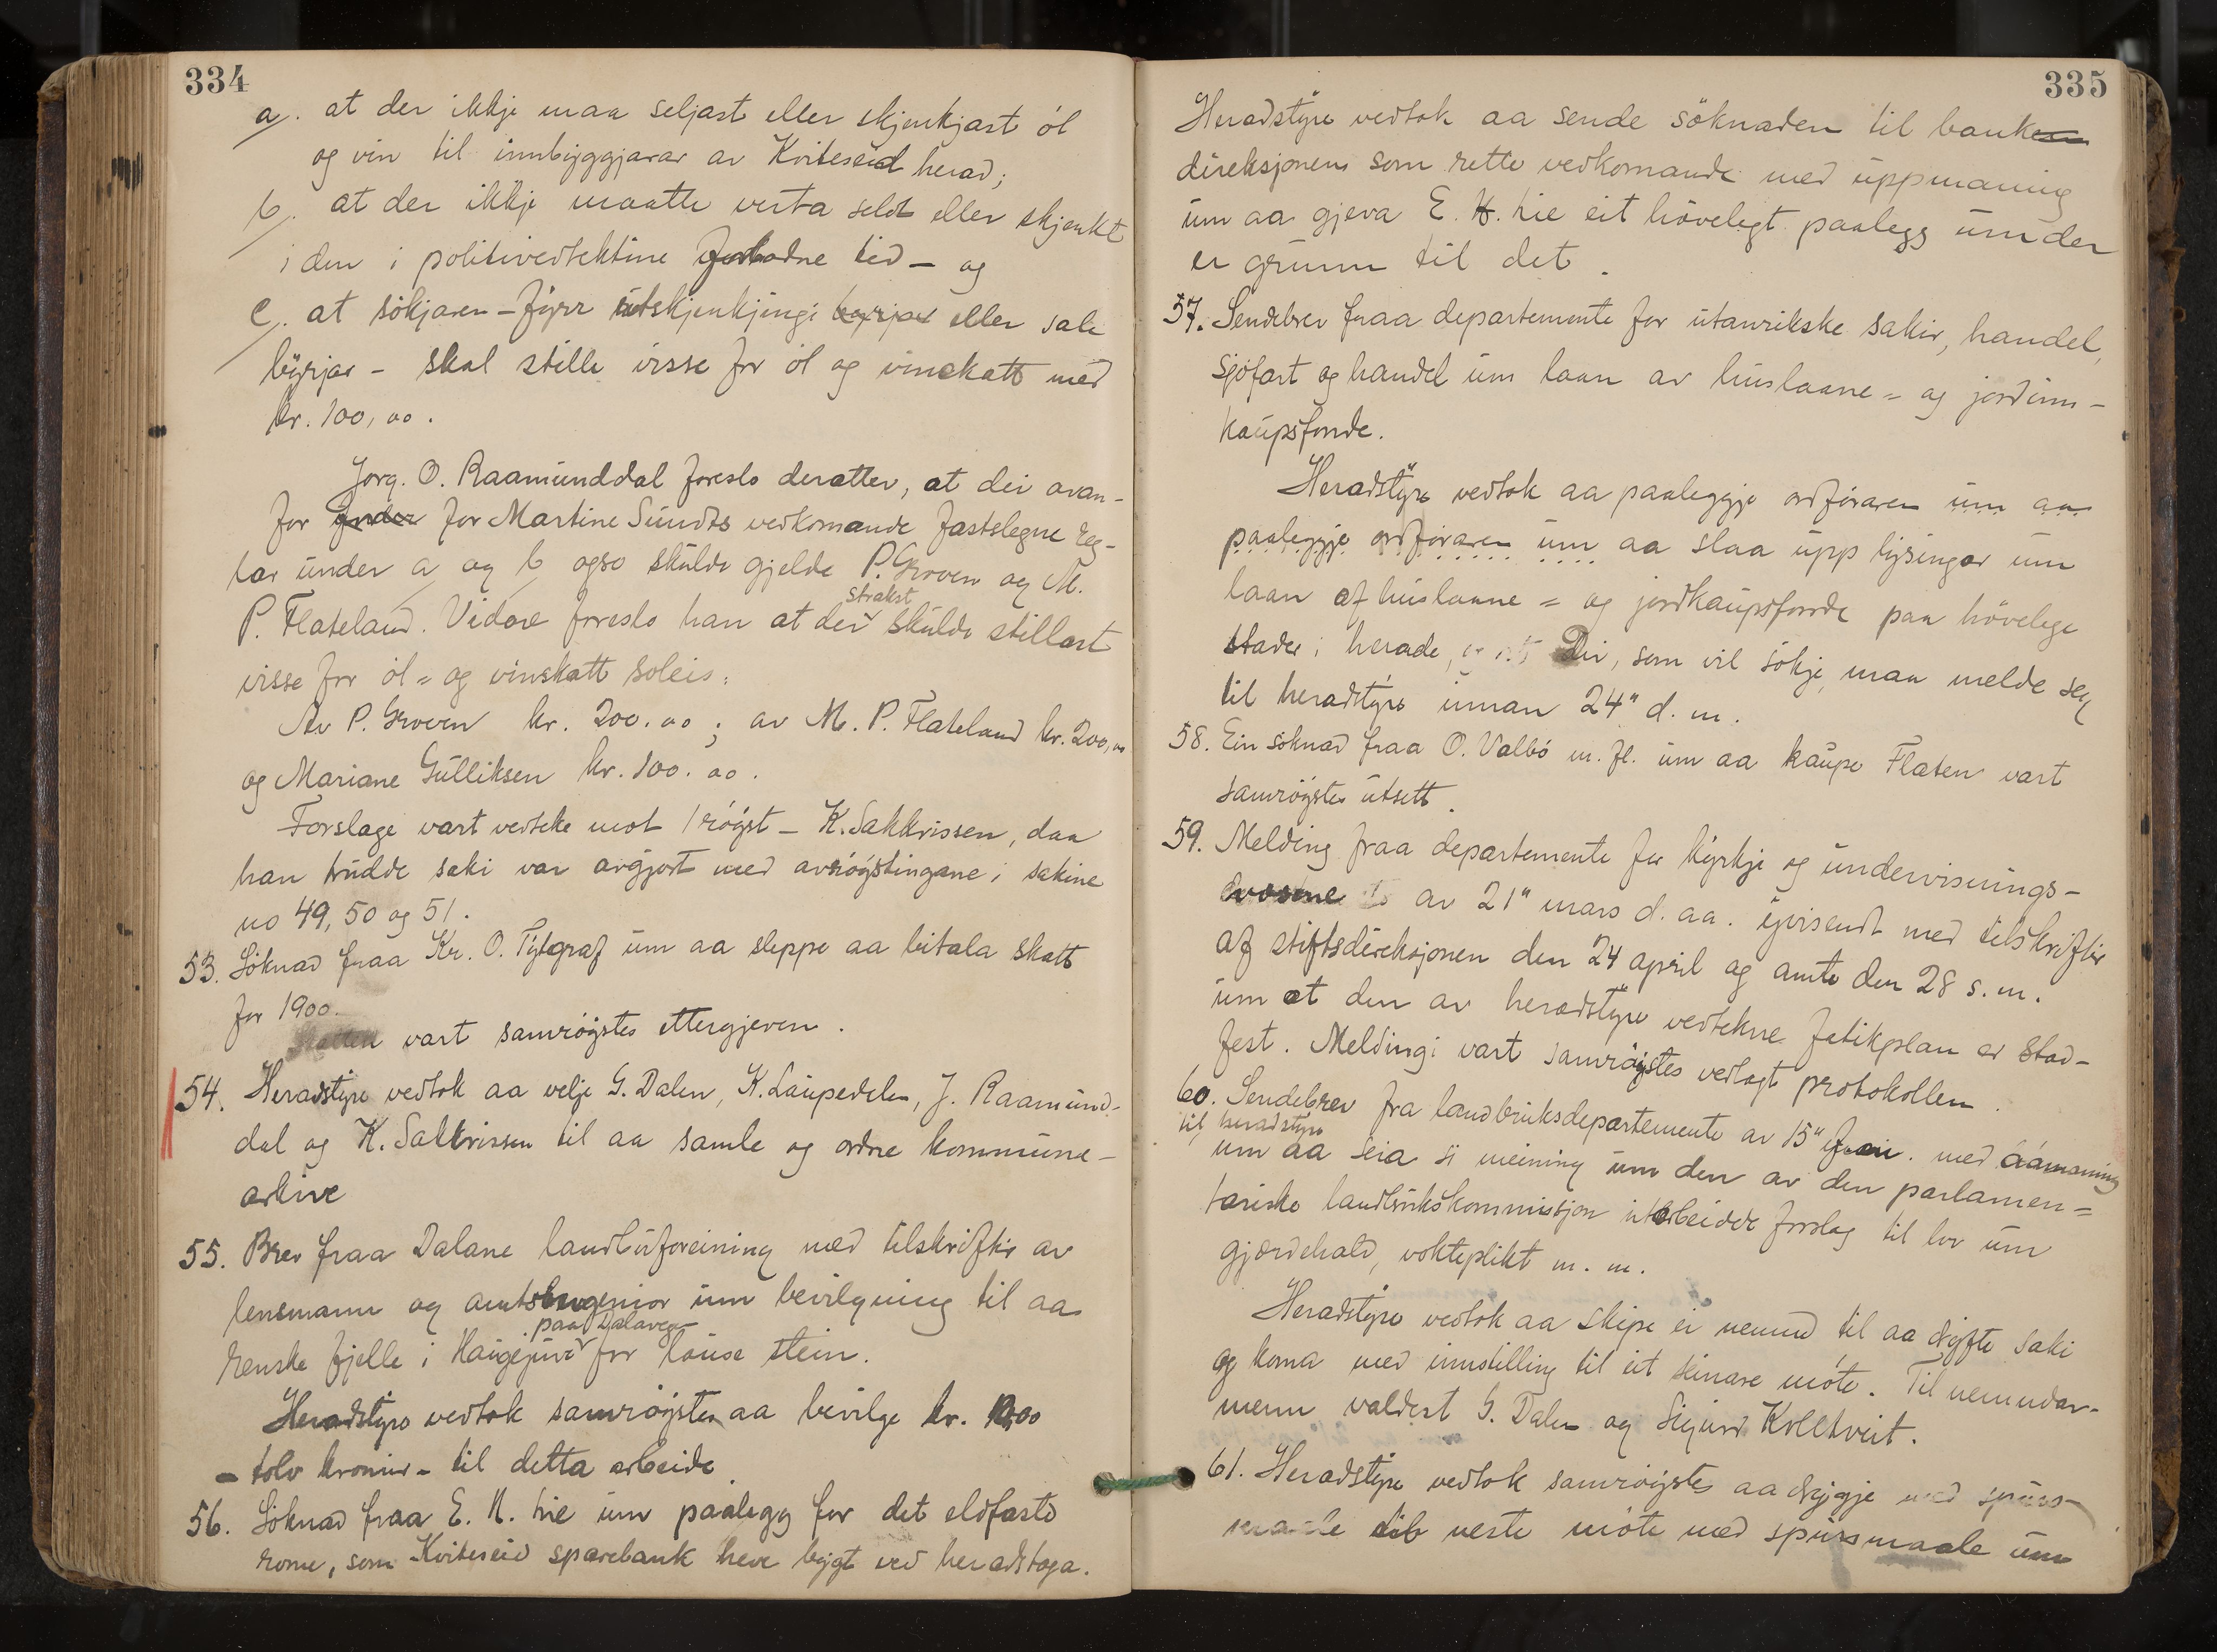 334
a/. at der ikkje maa seljast eller skjenkjast öl
og vin til innbyggjarar av Kviteseid herad;
b/. at der ikkje maatte verta selt eller skjenkt
i den i politivedtektine forbodne tid – og
c/. at sökjaren – fyrr utskjenkjingi byrjar eller sale
byrjar – skal stille visse for öl og vinskatt med
kr. 100,00.
Jorg. O. Raamunddal foreslo deretter, at dei ovan-
for for Martine Sundts vedkomande fastslegne reg-
lar under a/ og b/ ogso skulde gjelde P. Groven og M.
strakst
P. Flateland. Vidare foreslo han at der skulde stillast
visse for öl= og vinskatt soleis:
Av P. Groven kr. 200.00; av M. P. Flateland kr. 200,00
og Mariane Gulliksen kr. 100.00.
Forslage vart vedteke mot 1 röyst – K. Sakkrissen, daa
han trudde saki var avgjort med avröystingane i sakine
no 49, 50 og 51.
53. Söknad fraa Kr. O. Tytegraf um aa sleppe aa betala skatt
for 1900.
Skatten vart samröystes ettergjeven.
54. Heradstyre vedtok aa velje G. Dalen, K. Laupedalen, J. Raamund-
dal og K. Sakkrissen til aa samle og ordne kommune-
arkive
55. Brev fraa Dalane landlivforeining med tilskrifter av
lensmann og amtsingeniör um bevilgning til aa
paa Dalaveg
renske fjelle i Haugejuve for lause stein.
Heradstyre vedtok samröystes aa bevilge kr. 12,00
– tolv kronur – til detta arbeide.
56. Söknad fraa E. N. Lie um paalegg for det eldfaste
rome, som Kviteseid sparebank heve bygt ved heradstoga.
335
Heradstyre vedtok aa sende söknaden til banken
direksjonen som rette vedkomande med uppmaning
um aa gjeva E. N. Lie eit höveligt paalegg um der
er grunn til det.
57. Sendebrev fraa departemente for utanrikske saker, handel,
sjöfart og handel um laan av huslaane= og jordinn-
kaupsfonde.
Heradstyre vedtok aa paaleggje ordföraren um aa
paaleggje ordföraren um aa slaa upp lysingar um
laan af huslaane= og jordkaupsfonde paa hövelege
stader i herade, Dei, som vil sökje, maa melde seg
til heradstyre innan 24" d. m.
58. Ein söknad fraa O. Valbö m. fl. um aa kaupe Flaten vart
samröystes utsett.
59. Melding fraa departemente for kyrkje og undervisnings-
av 21" mars d. aa. yvisendt med tilskrifter
af stiftsdireksjonen den 24 april og amte den 28 s. m.
um at den av heradstyre vedtekne fatikplan er stad-
fest. Meldingi vart samröystes vedlagt protokollen.
60. Sendebrev fra landbruksdepartemente av 15" med ååmaning
til heradstyre
um aa seia si meining um den av den parlamen=
tariske landbrukskommissjon utarbeidde forslag til lov um
gjærdehald, vokteplikt m. m.
Heradstyre vedtok aa skipe ei nemnd til aa dryfte saki
og koma med innstilling til eit seinare möte. Til nemndar-
menn valdest G. Dalen og Sigurd Kvålltveit.
61. Heradstyre vedtok samröystes aa dryggje med spurs-
maale til neste möte med spursmaale um